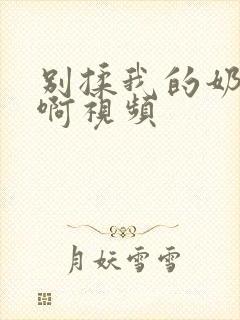 别揉我的奶
啊視頻
月妖雪雪